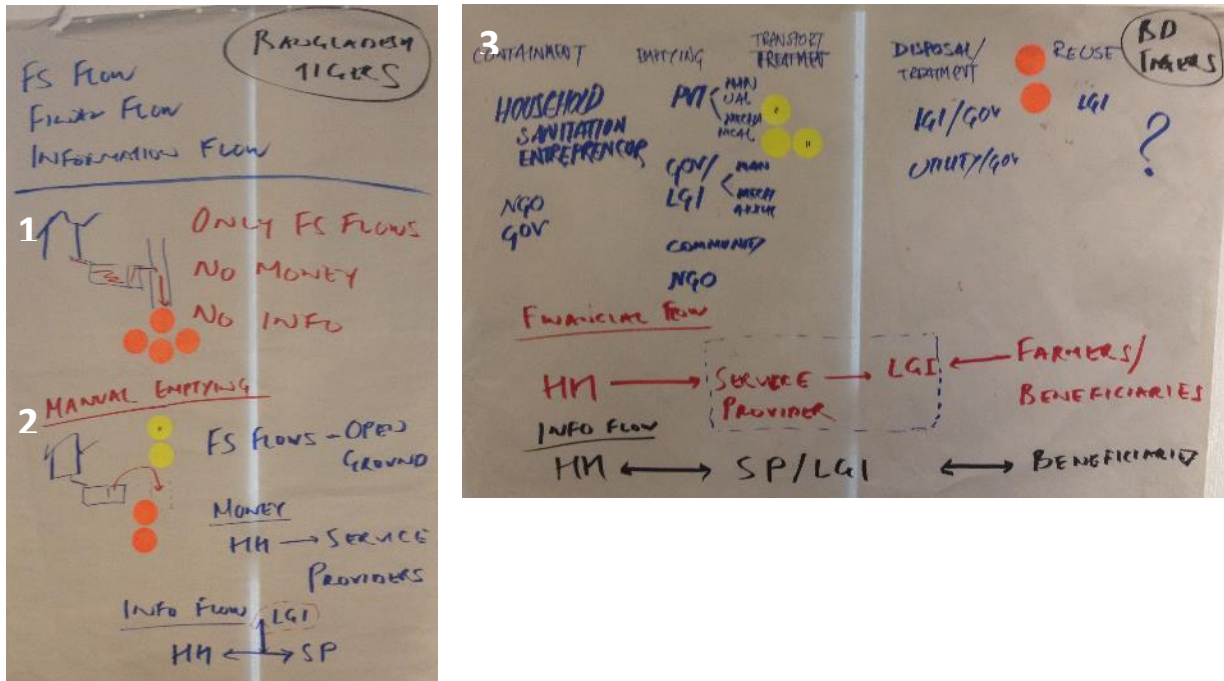 BANGLADESH
TIGERS
FS FLOW
FLOW
INFORMATION FLOW
1
ONLY FS FLOWS
NO MONEY
NO INFO
MANUAL EMPTYING
2
FS FLOWS - OPEN
GROUND
MONEY
HH → SERVICE
PROVIDERS
INFO FLOW LGI
HH ↔ SP
3
BD
TIGERS
CONTAINMENT
EMPTYING
TRANSPORT/
TREATMENT
DISPOSAL/
TREATMENT
REUSE
HOUSEHOLD
SANITATION
ENTREPRENCOR
NGO
GOV
PVT
MAN
UAL
MECHA
NICAL
GOV/
LGI
MAN
MECH
COMMUNITY
NGO
LGI/GOV
UTILITY/GOV
LGI
?
FINANCIAL FLOW
HH → SERVICE
PROVIDER → LGI ← FARMERS/
BENEFICIARIES
INFO FLOW
HH ↔ SP/LGI ↔ BENEFICIARIES